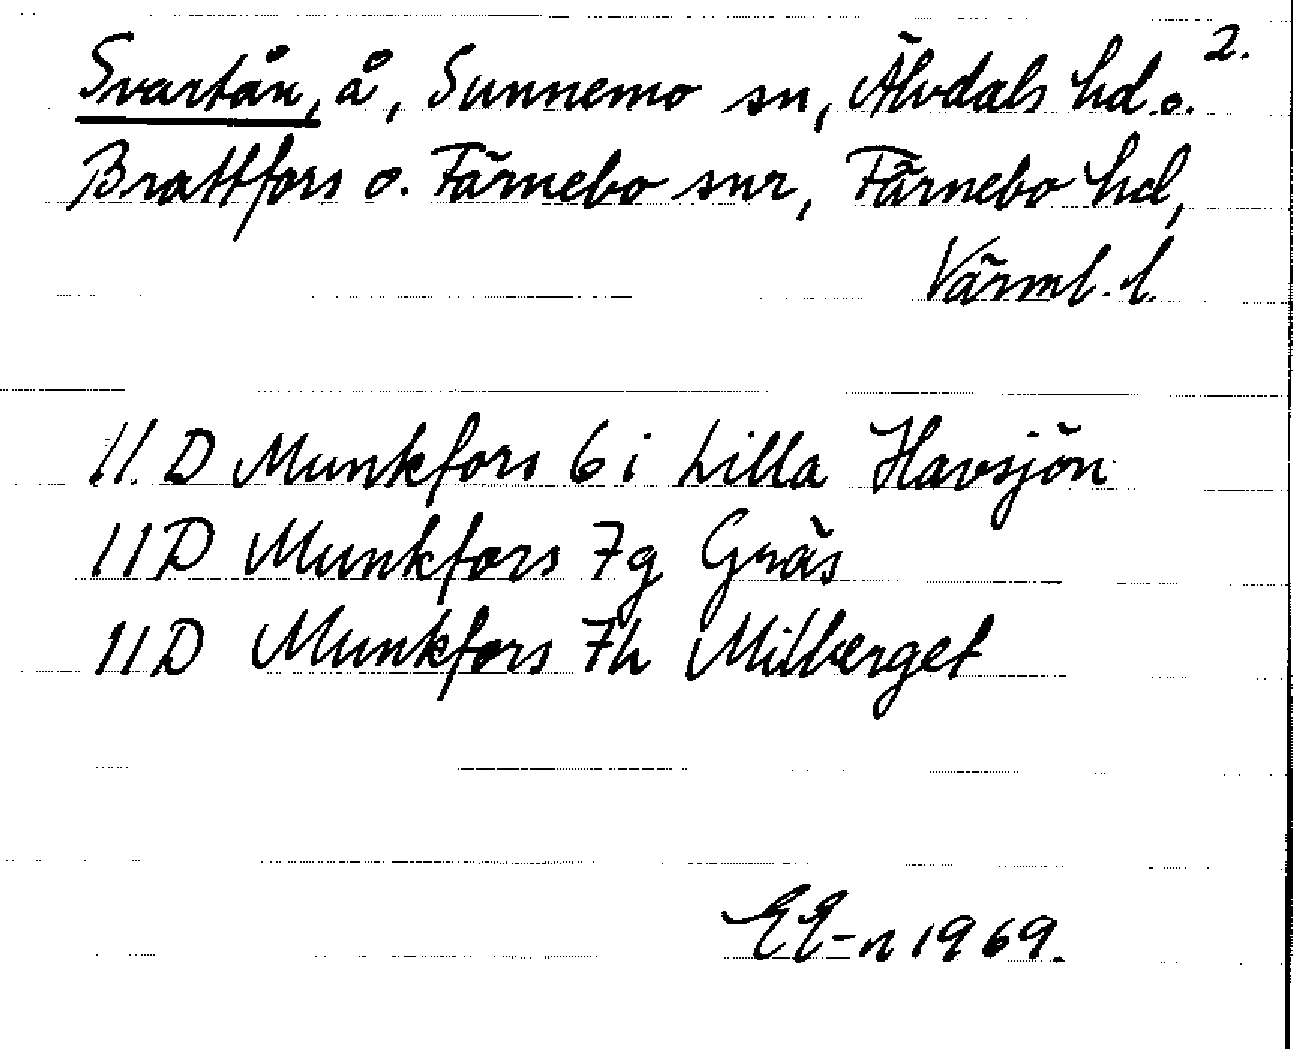 2.
Svartån, å, Sunnemo sn, Älvdals hd o.
Brattfors o. Färnebo snr, Färnebo hd,
Värml. l.
11 D Munkfors 6 i Lilla Havsjön
11 D Munkfors 7g Gräs
11 D Munkfors 7h Milberget
EE-n 1969.